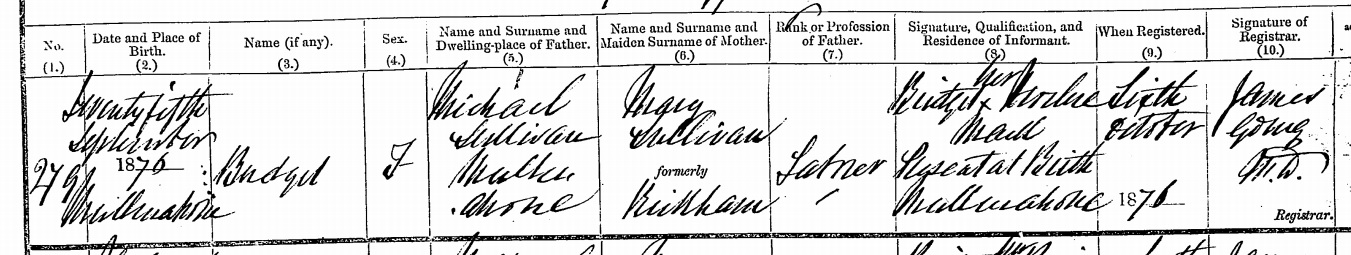 No.
(1.)
Date and Place of
Birth.
(2.)
Name (if any).
(3.)
Sex.
(4.)
Name and Surname and
Dwelling-place of Father.
(5.)
Name and Surname and
Maiden Surname of Mother.
(6.)
Rank or Profession
of Father.
(7.)
Signature, Qualification, and
Residence of Informant.
(8.)
When Registered.
(9.)
Signature of
Registrar.
(10.)
279
Twentyfifth
September
1876
Mullmahone
Bridget
F
Michael
Sullivan
Mullm
ahone
Mary
Sullivan
formerly
Kirkham
Laborer
Bridget her x
Mark
Present at Birth
Mullmahone
Sixth
October
1876
James
Going
M.D.
Registrar.